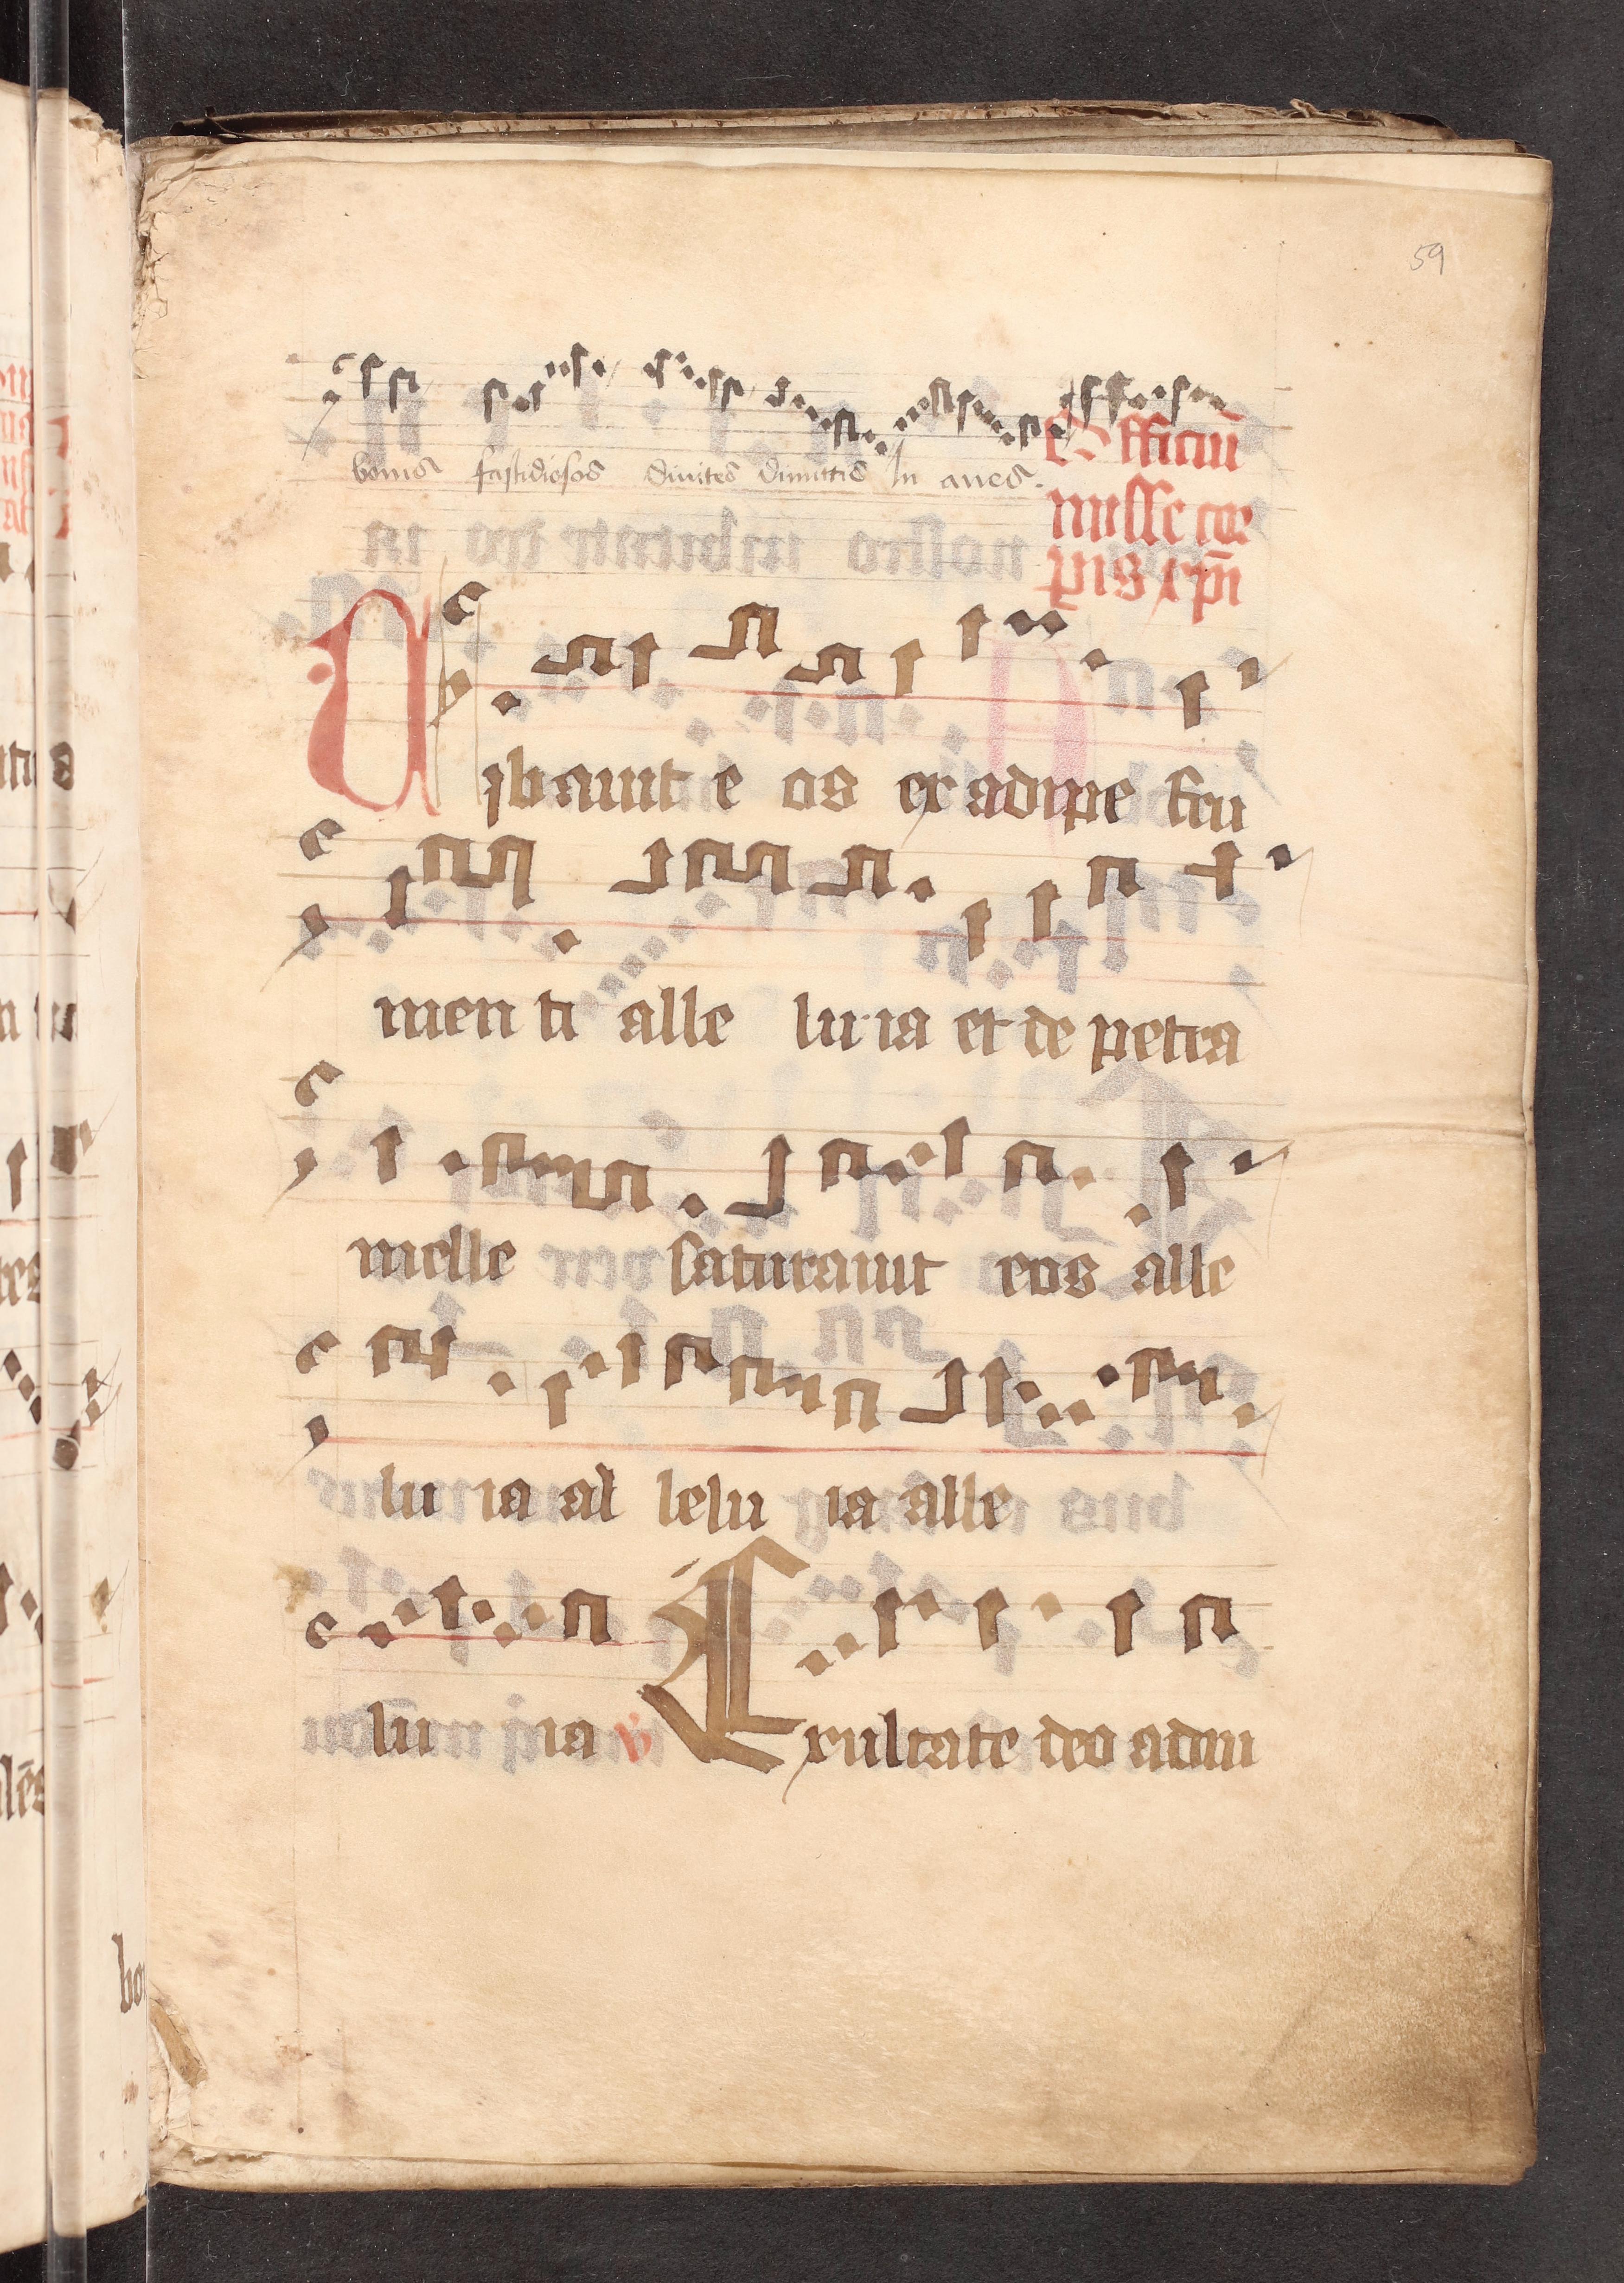 59
bonis fastidiosos diuites dimittis In anes.
Officiū
misse cor
pis xp̄i
Cibauit e os ex adipe fru
men ti alle lu ia et de petra
melle saturauit eos alle
lu ia al lelu ia alle
lu ia v Exultate deo adiu